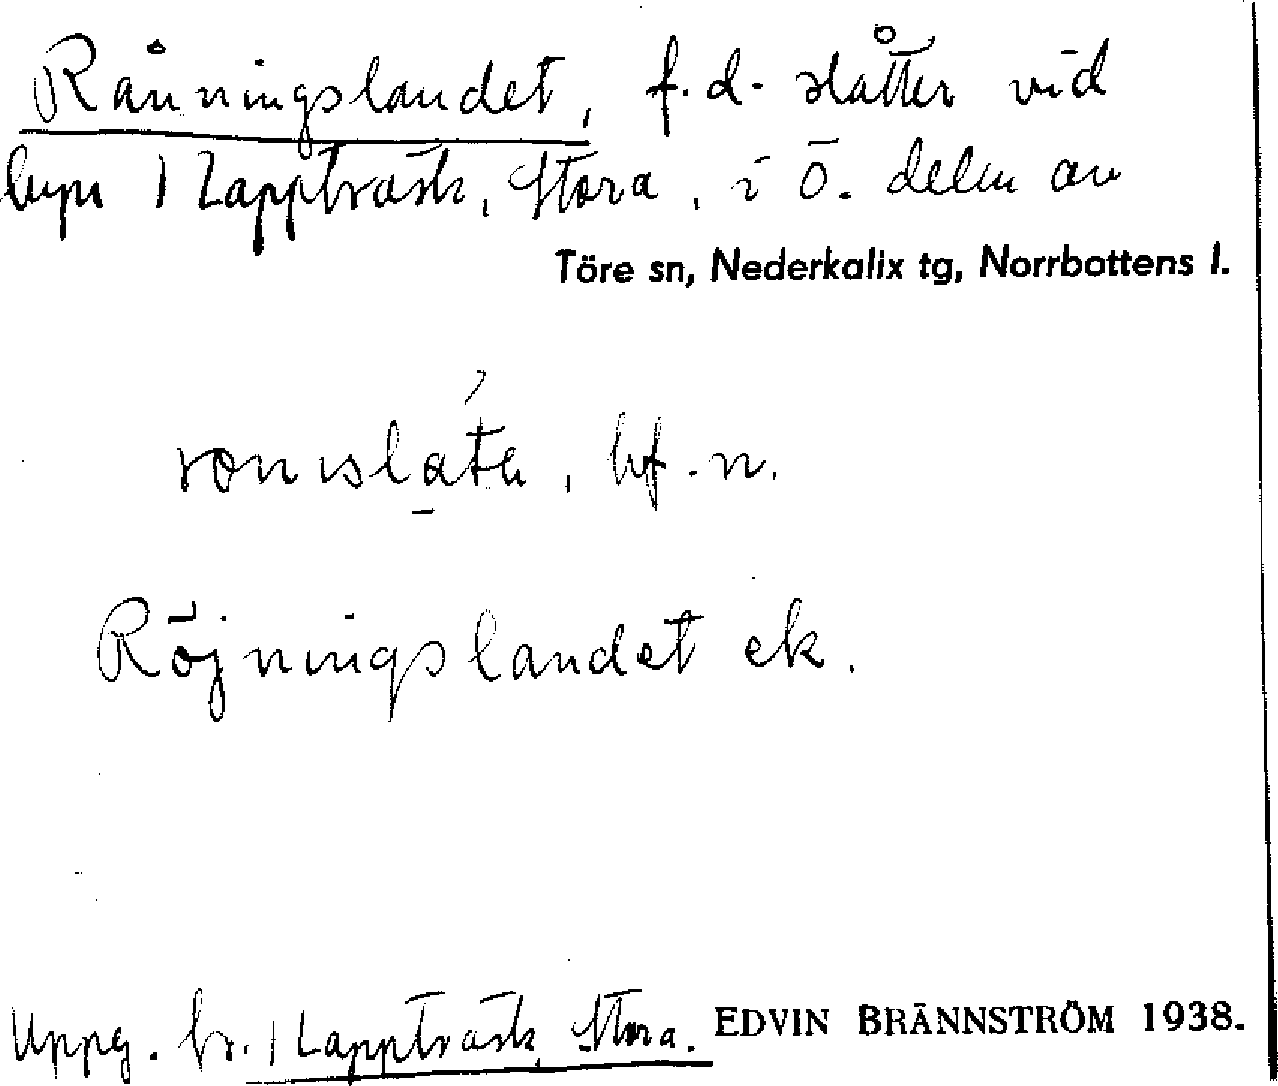 Rånningslandet, f.d. slåtter vid
byn 1 Lappträsk, Stora, i ö. delen av
Töre sn, Nederkalix tg, Norrbottens l.
bf. n.
Röjningslandet ek.
Uppg. br. 1 Lappträsk, Stora. EDVIN BRÄNNSTRÖM 1938.